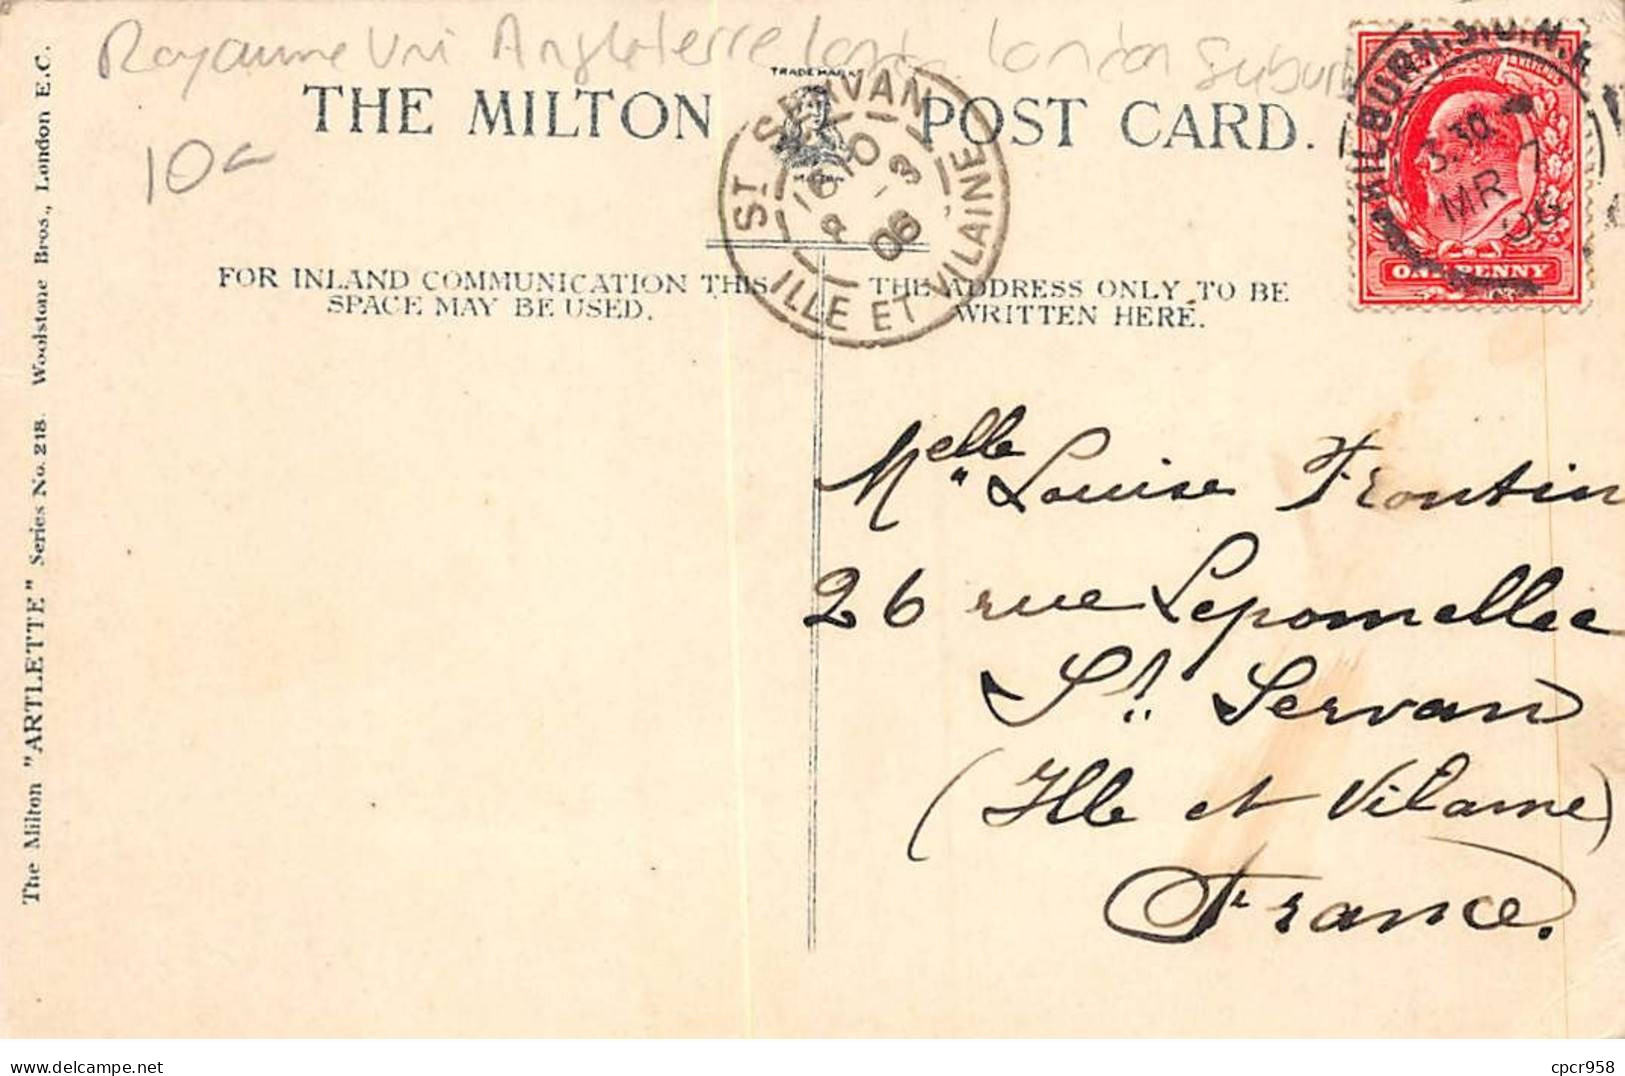 Royaume Uni Angleterre London Suburb
10
TRADE MARK
THE MILTON POST CARD.
MILTON
ST SERVAN
ILLE ET VILAINE
16 10
8 - 3
06
KILBURN.S.O.N.
3.30
MR 7
06
ONE PENNY
FOR INLAND COMMUNICATION THIS
SPACE MAY BE USED.
THE ADDRESS ONLY TO BE
WRITTEN HERE.
Melle Louise Frontin
26 rue Lepomellec
St. Servan
(Ille et Vilaine)
France.
The Milton "ARTLETTE" Series No. 218. Woolstone Bros., London E.C.
cpcr958